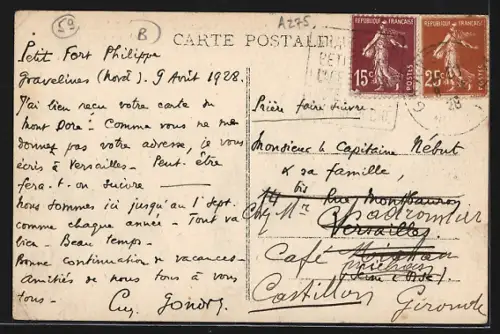 59
B
A275.
CARTE POSTALE
REPUBLIQUE FRANÇAISE
15c
POSTES
REPUBLIQUE FRANÇAISE
25c
POSTES
28
Petit Fort Philippe
Gravelines (Nord). 9 Avril 1928.
J'ai bien reçu votre carte du
Mont Dore! Comme vous ne me
donnez pas votre adresse, je vous
écris à Versailles - Peut-être
fera-t-on suivre
Nous sommes ici jusqu'au 1 Sept.
comme chaque année - Tout va
bien - Beau temps -
Bonne continuation de vacances -
Amitiés de nous tous à vous
tous -
Prière faire suivre -
Monsieur le Capitaine Nébut
& sa famille,
14 bis Rue Montbauron
Chez Mr Chadromier
Versailles
Café
Castillon Gironde